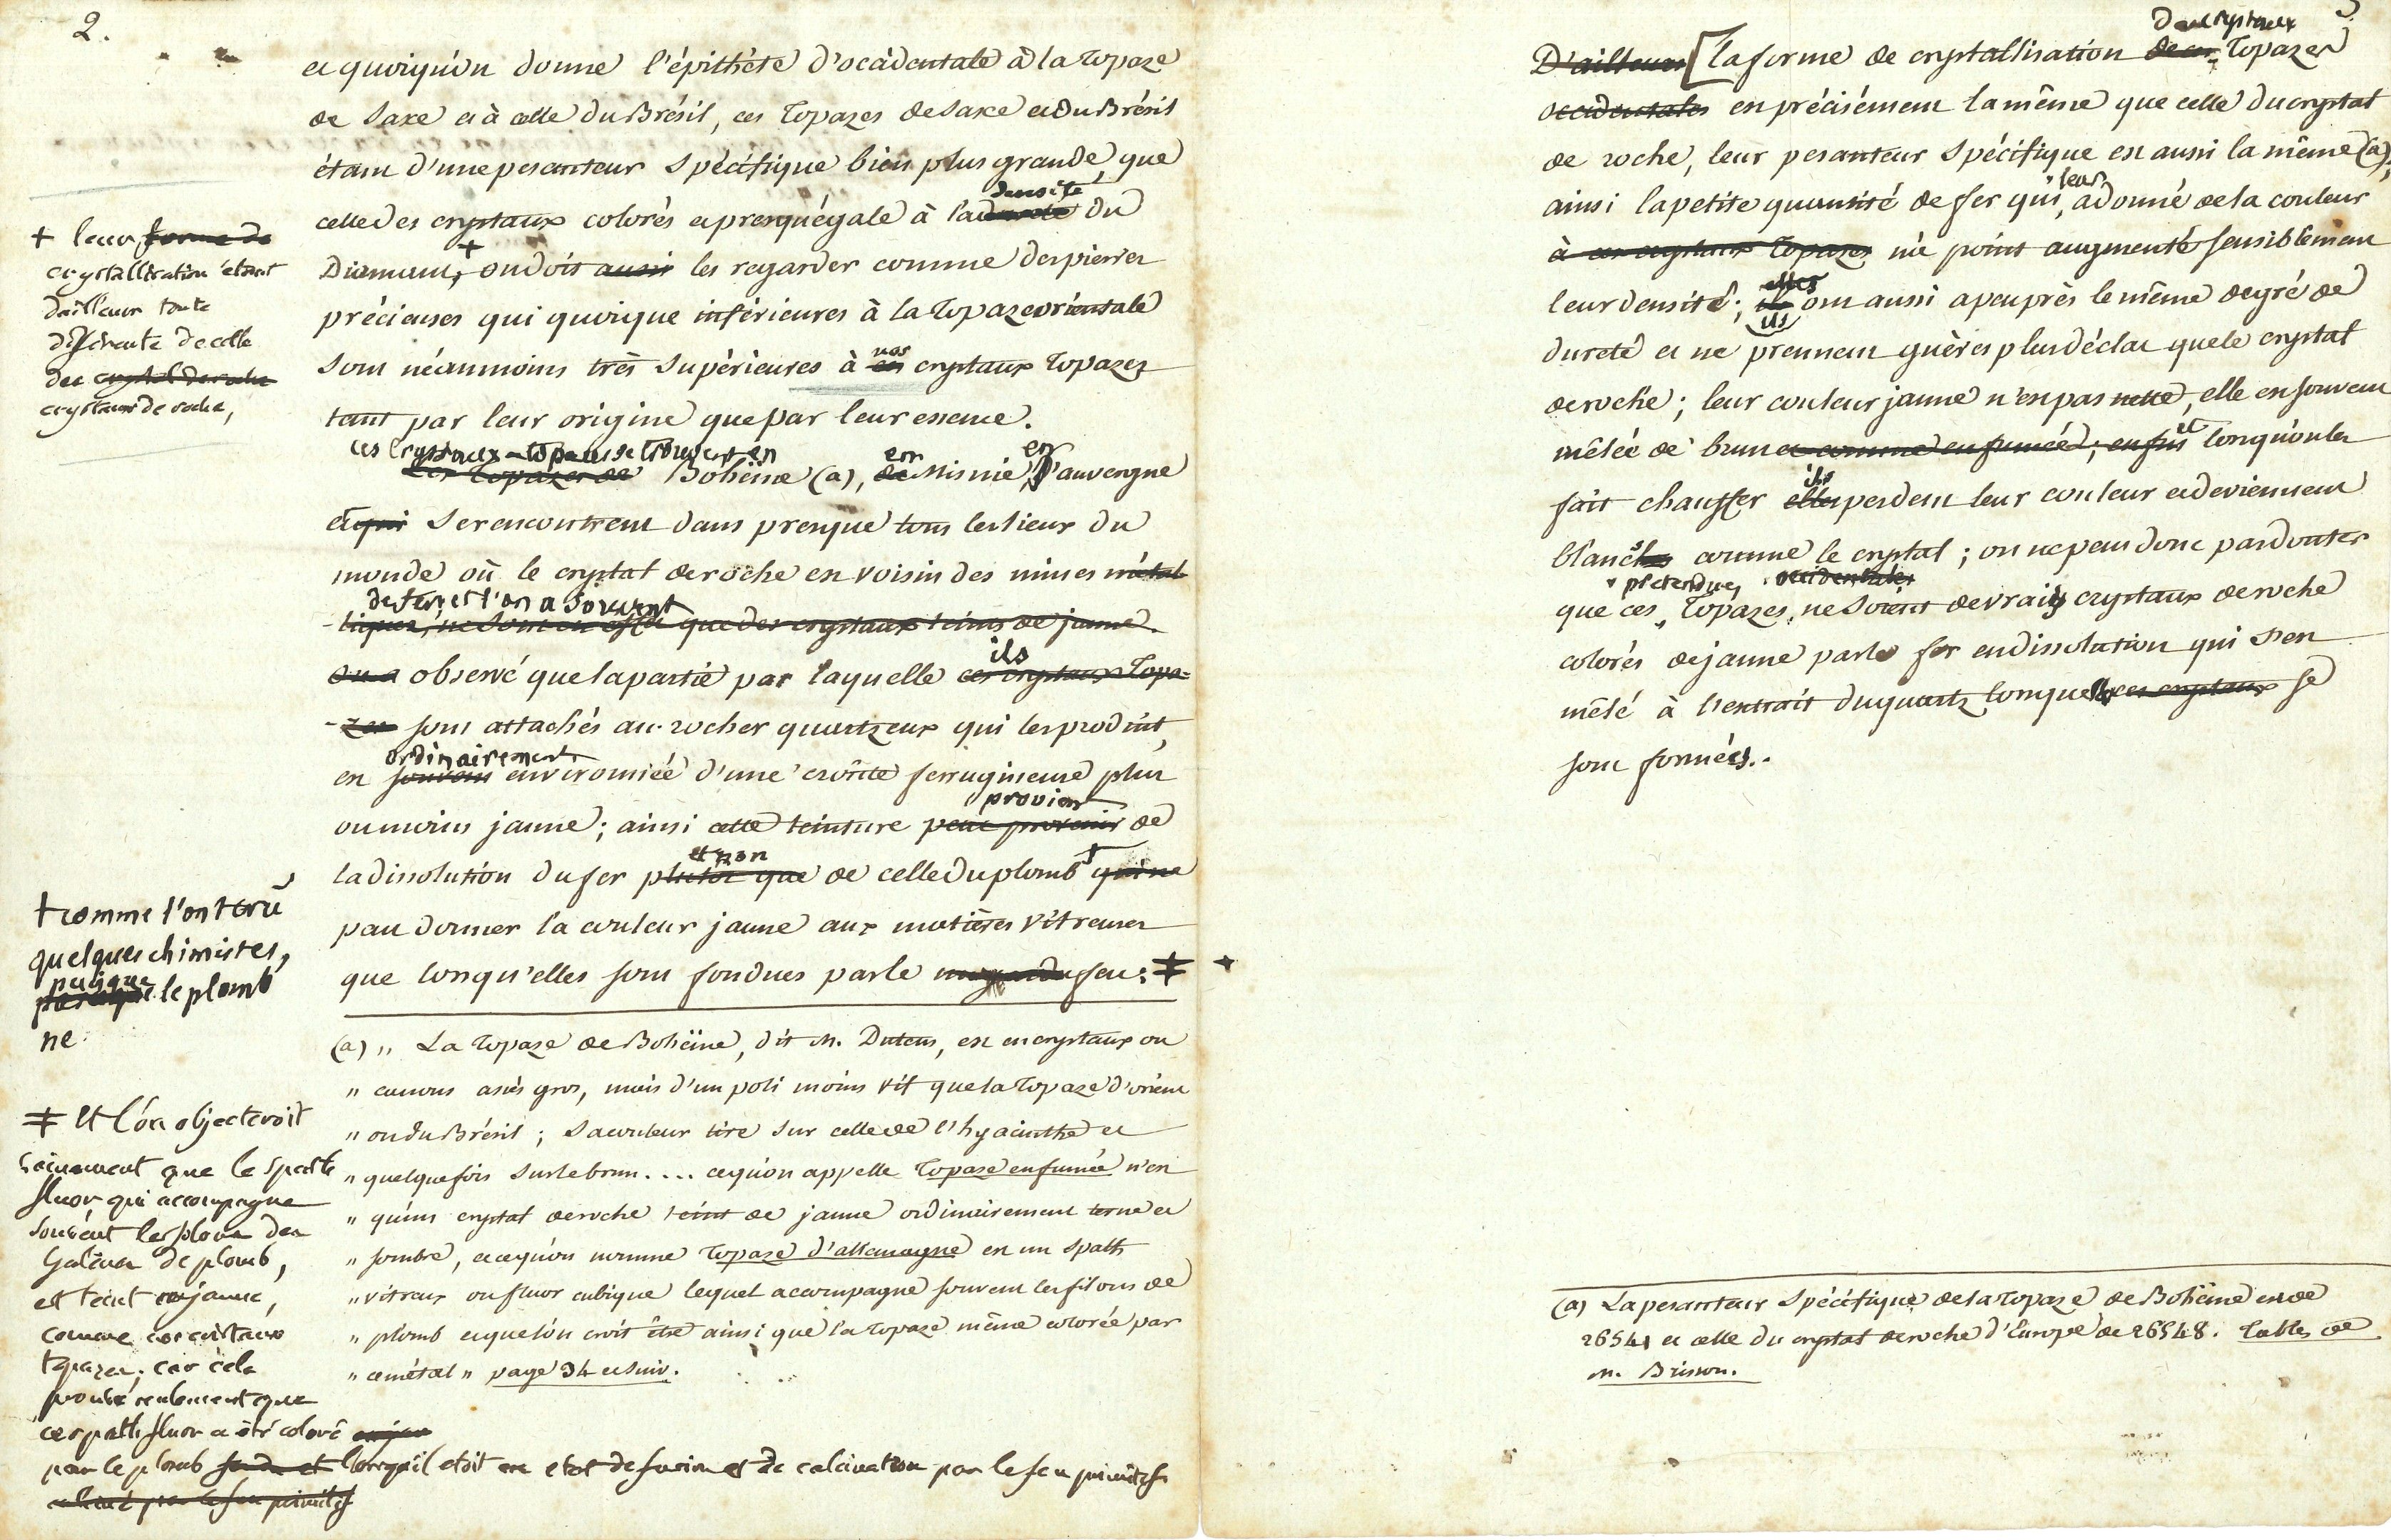 2.
et quoiqu'on donne l'épithète d'occidentale à la Topaze
de Saxe et à celle du Brésil, ces Topazes de Saxe et du Brésil
étant d'une pesanteur spécifique bien plus grande, que
densité
celle des crystaux colorés et presqu'égale à la dureté du
+
Diamant, on doit aussi les regarder comme des pierres
précieuses qui quoique inférieures à la Topaze orientale
nos
sont néanmoins très supérieures à ces crystaux Topazes
tant par leur origine que par leur essence.
ces Crystaux-topazes se trouvent en en en
Les Topazes de Bohême (a), de Misnie, d'auvergne
et qui se rencontrent dans presque tous les lieux du
monde où le crystal de roche est voisin des mines métal
de fer, et l'on a souvent
-liques, ne sont en effet que des crystaux teints de jaune.
ils
on a observé que la partie par laquelle ces crystaux Topa-
-zes sont attachés au rocher quartzeux qui les produit,
ordinairement
est souvent environnée d'une croûte ferrugineuse plus
provient
ou moins jaune; ainsi cette teinture peut provenir de
et non
la dissolution du fer plutôt que de celle du plomb + qui ne
peut donner la couleur jaune aux matières vitreuses
que lorsqu'elles sont fondues par le feu: ‡
+ leur forme de
crystallisation étant
d'ailleurs toute
différente de celle
des crystal de roche
crystaux de roche,
+ comme l'ont crû
quelques chimistes,
puisque
parceque le plomb
ne
‡ et l'on objecteroit
vainement que le spath
fluor qui accompagne
souvent les filons des
galènes de plomb,
est teint en jaune,
comme ces cristaux
topazes; car cela
prouve seulement que
ce spath fluor a été coloré en jaune
par le plomb fondu et lorsqu'il etoit en etat de fusion et de calcination par le feu primitif
calciné par le feu primitif
(a) „ La Topaze de Bohême, dit M. Dutens, est en crystaux ou
„ canons assés gros, mais d'un poli moins vif que la Topaze d'orient
„ ou du Brésil; sa couleur tire sur celle de l'hyacinthe et
„ quelquefois sur le brun.... ce qu'on appelle Topaze enfumée n'est
„ qu'un crystal de roche teint de jaune ordinairement terne et
„ sombre, et ce qu'on nomme Topaze d'allemagne est un spath
„ vitreux ou fluor cubique lequel accompagne souvent les filons de
„ plomb et que l'on croit être ainsi que la topaze même colorée par
„ ce métal „ page 34 et suiv.
des crystaux
D'ailleurs [la forme de crystallisation de ces Topazes
occidentales est précisément la même que celle du crystal
de roche, leur pesanteur spécifique est aussi la même (a);
leur
ainsi la petite quantité de fer qui a donné de la couleur
à ces crystaux Topazes n'a point augmenté sensiblement
elles
leur densité; ils ont aussi apeuprès le même degré de
ils
dureté et ne prennent guères plus d'éclat que le crystal
de roche; leur couleur jaune n'est pas nette, elle est souvent
et
mêlée de brun et comme enfumée; enfin lorsqu'on les
ils
fait chauffer elles perdent leur couleur et deviennent
s
blanches comme le crystal; on ne peut donc pas douter
prétendues occidentales
que ces Topazes ne soient de vrais crystaux de roche
colorés de jaune par le fer en dissolution qui s'est
mêlé à l'extrait du quartz lorsque ces crystaux se
sont formés.
(a) La pesanteur spécifique de la Topaze de Bohême est de
26541 et celle du crystal de roche d'Europe de 26548. Tables de
M. Brisson.